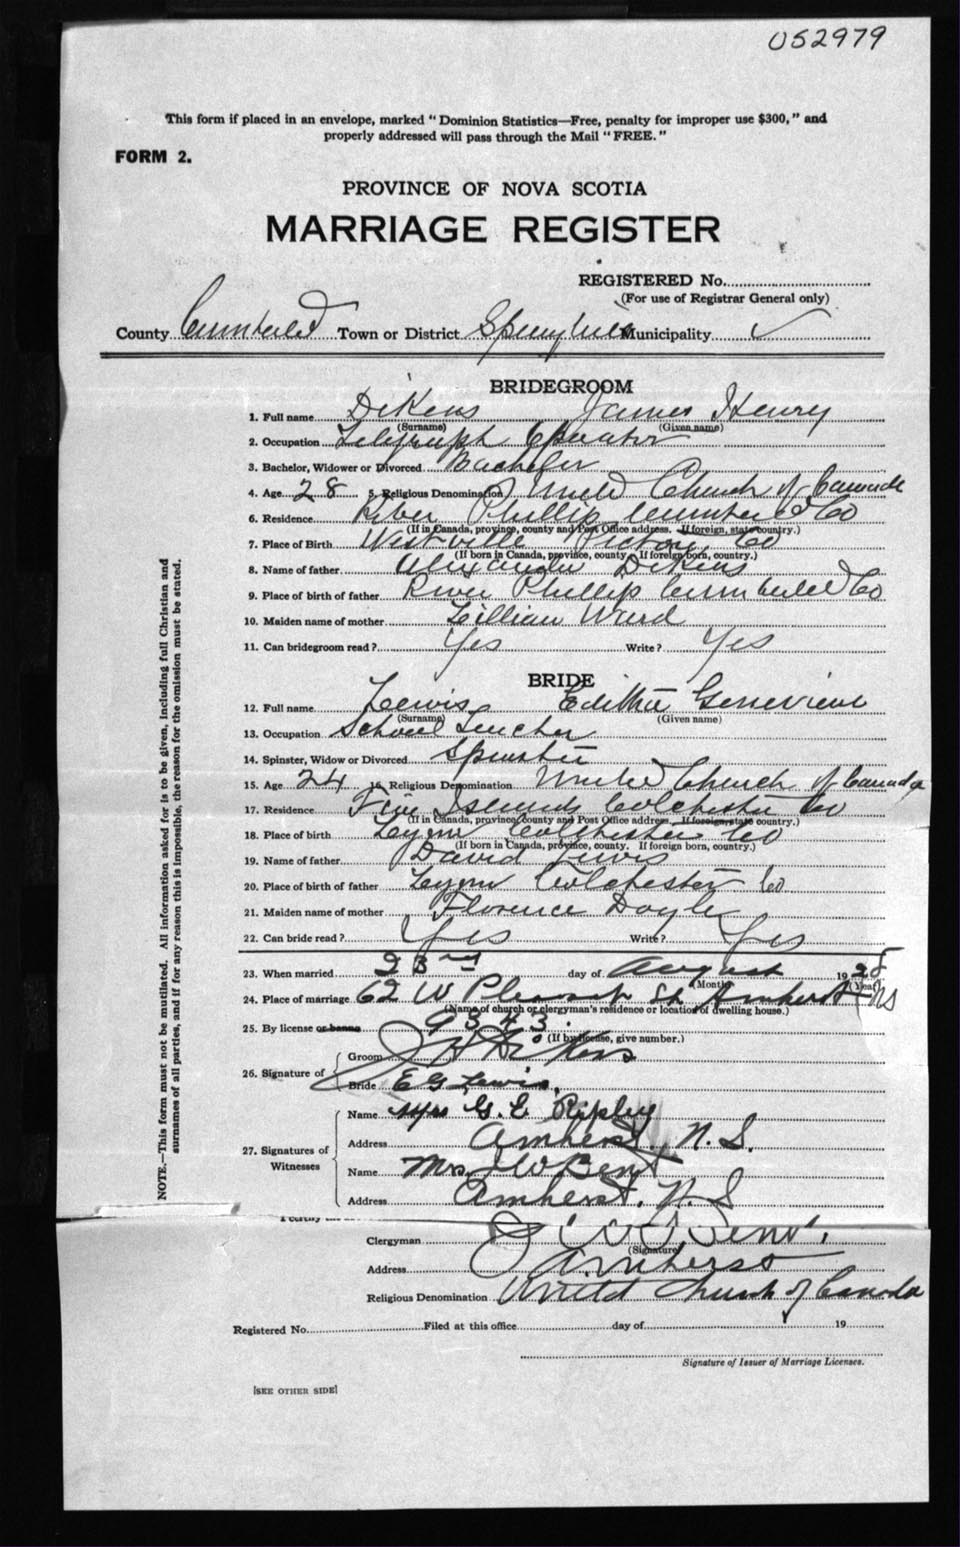 052979
This form if placed in an envelope, marked "Dominion Statistics—Free, penalty for improper use $300," and
properly addressed will pass through the Mail "FREE."
FORM 2.
PROVINCE OF NOVA SCOTIA
MARRIAGE REGISTER
REGISTERED No.
(For use of Registrar General only)
County Cumberland Town or District Springhill Municipality ✓
BRIDEGROOM
1. Full name Dikens James Henry
(Surname) (Given name)
2. Occupation Telegraph Operator
3. Bachelor, Widower or Divorced Bachelor
4. Age 28 5. Religious Denomination United Church of Canada
6. Residence River Phillip Cumberland Co
(If in Canada, province, county and Post Office address. If foreign, state country.)
7. Place of Birth Westville Pictou Co
(If born in Canada, province, county. If foreign born, country.)
8. Name of father Alexander Dikens
9. Place of birth of father River Phillip Cumberland Co
10. Maiden name of mother Lillian Ward
11. Can bridegroom read? Yes Write? Yes
BRIDE
12. Full name Lewis Editha Genevieve
(Surname) (Given name)
13. Occupation School Teacher
14. Spinster, Widow or Divorced Spinster
15. Age 24 16. Religious Denomination United Church of Canada
17. Residence Five Islands Colchester Co
(If in Canada, province, county and Post Office address. If foreign, state country.)
18. Place of birth Lynn Colchester Co
(If born in Canada, province, county. If foreign born, country.)
19. Name of father David Lewis
20. Place of birth of father Lynn Colchester Co
21. Maiden name of mother Florence Doyle
22. Can bride read? Yes Write? Yes
23. When married 23rd day of August 1928
(Month) (Year)
24. Place of marriage 62 W Pleasant St Amherst NS
(Name of church or clergyman's residence or location of dwelling house.)
25. By license or banns 9343
(If by license, give number.)
26. Signature of
Groom J H Dikens
Bride E G Lewis.
27. Signatures of Witnesses
Name Mrs G. E Ripley
Address Amherst N. S.
Name Mrs. J W Bent
Address Amherst. N. S
I certify
Clergyman Bent.
(Signature)
Address Amherst
Religious Denomination United Church of Canada
Registered No. Filed at this office day of 19
Signature of Issuer of Marriage Licenses.
[SEE OTHER SIDE]
NOTE.—This form must not be mutilated. All information asked for is to be given, including full Christian and
surnames of all parties, and if for any reason this is impossible, the reason for the omission must be stated.